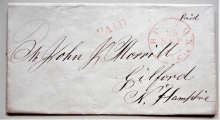 Paid
PAID
Mr John J Merritt
Gilford
N. Hampshire